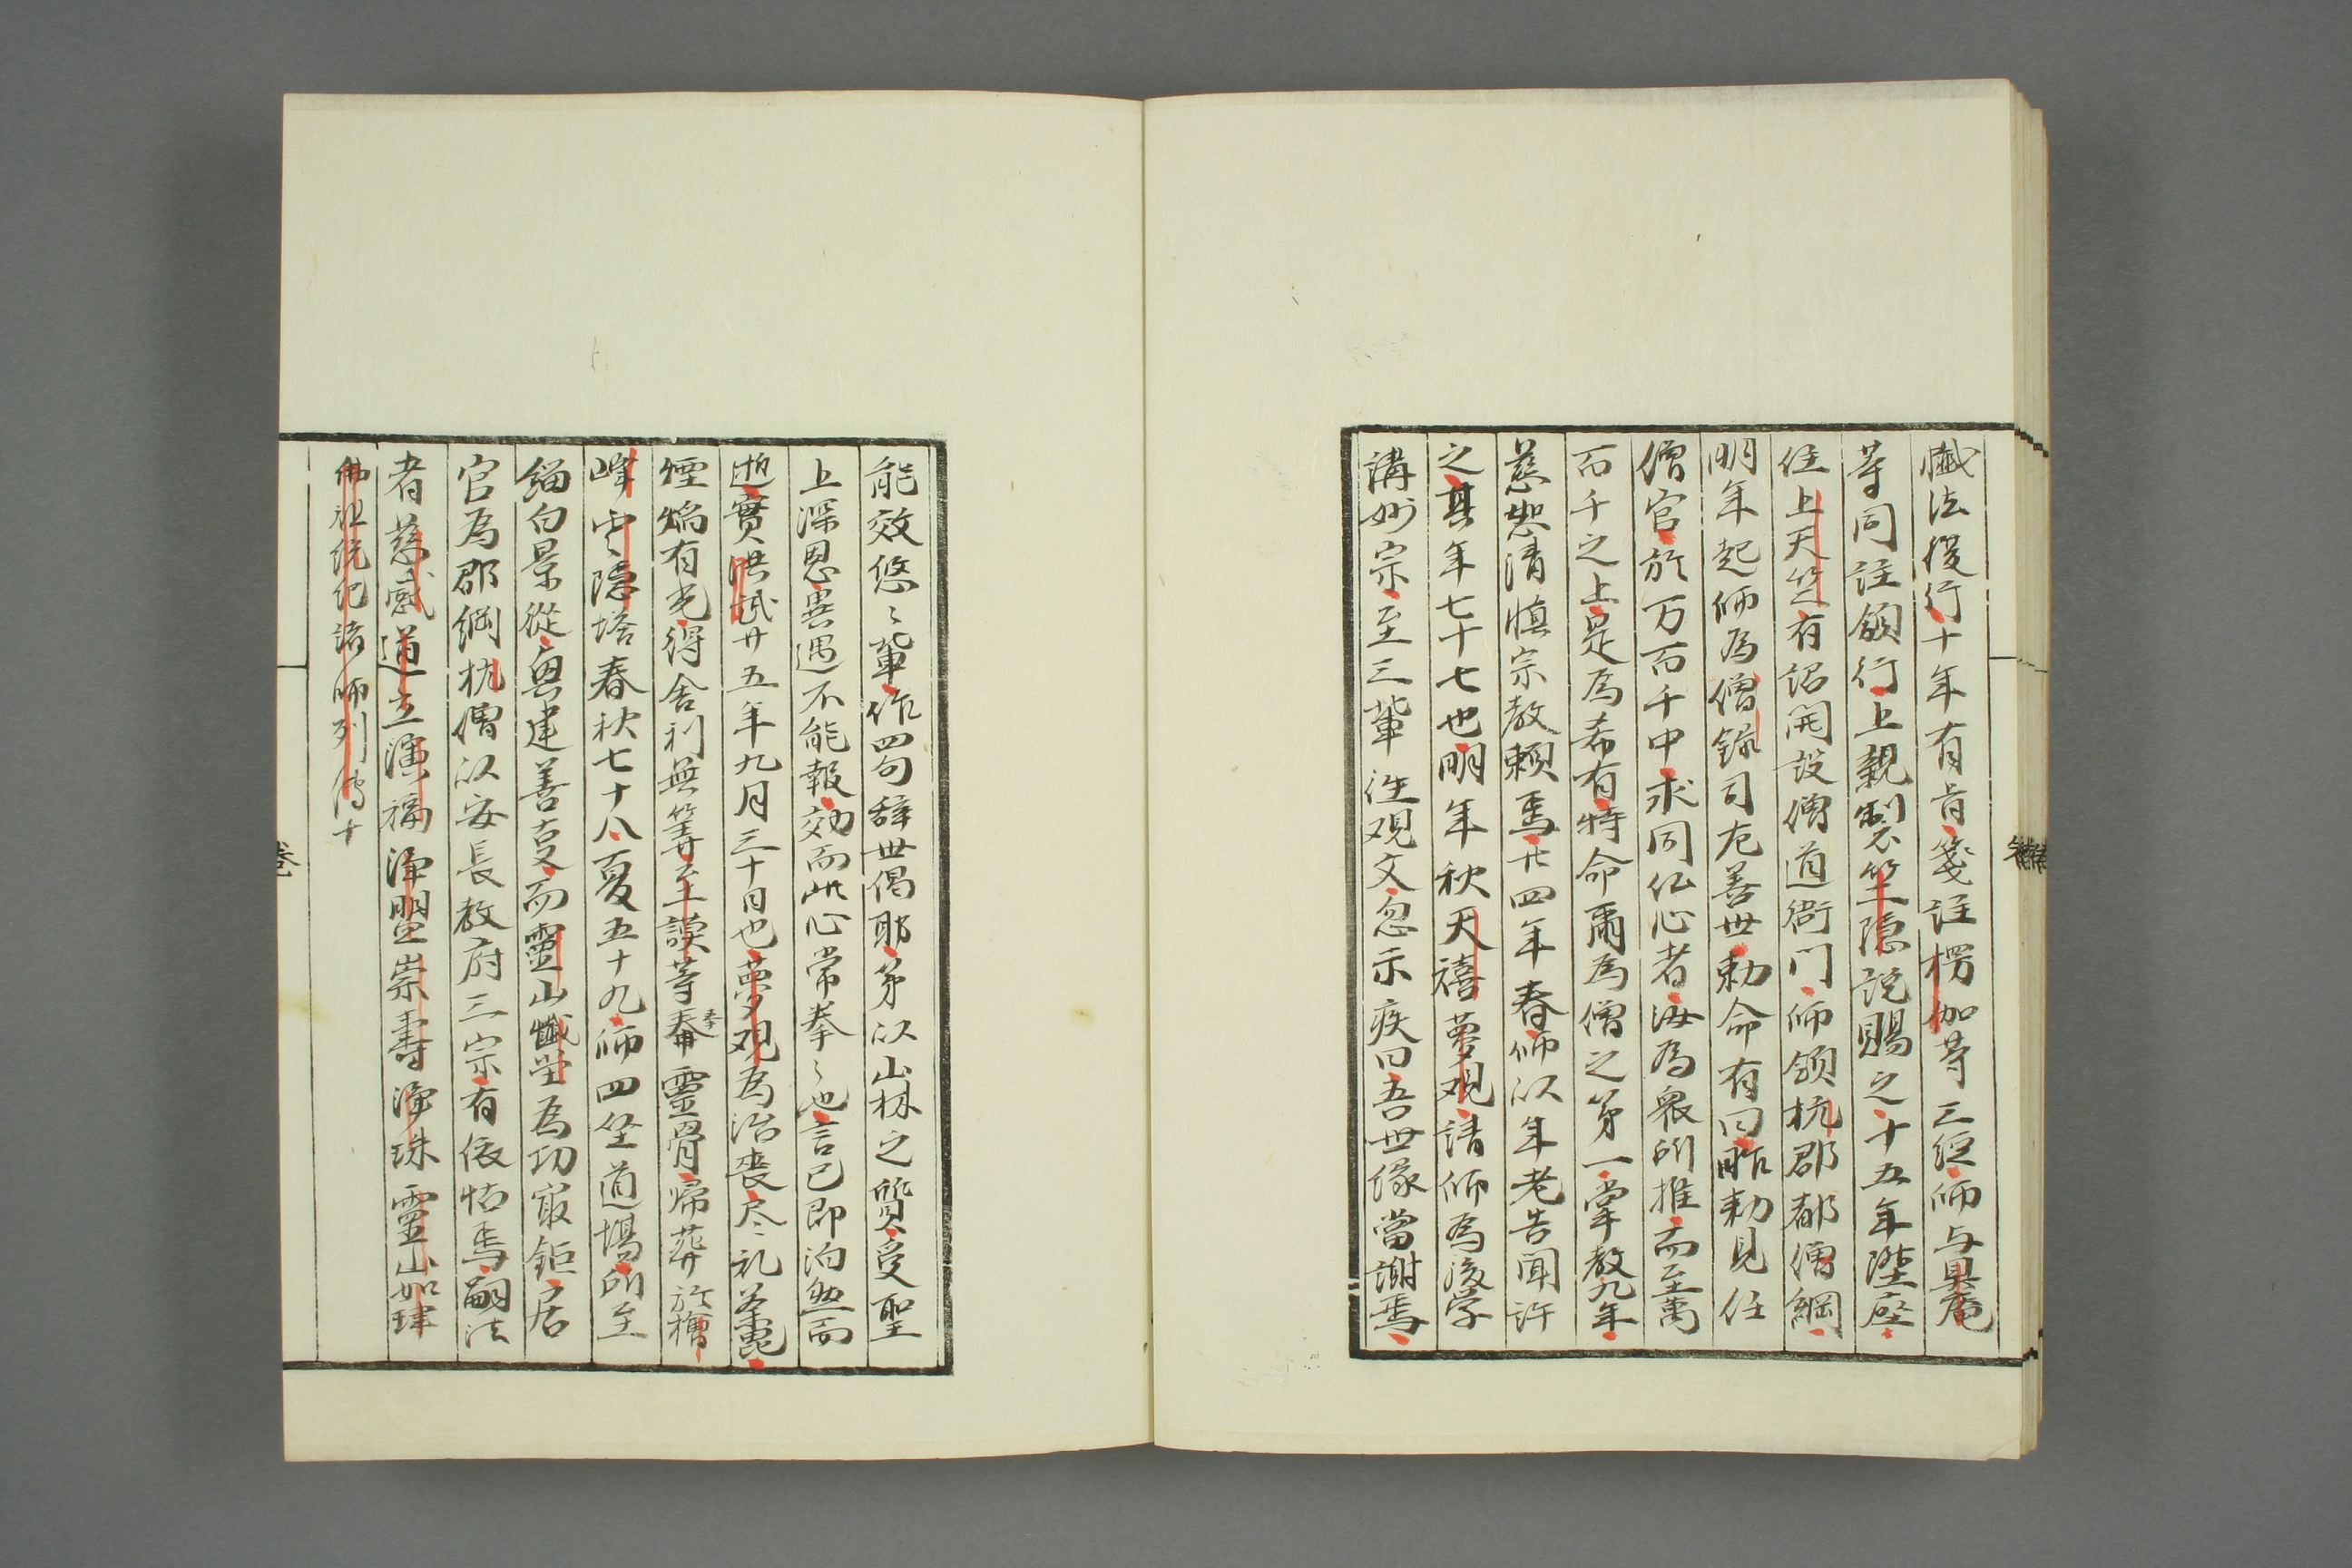 懴法後行十年有旨箋註楞伽等三經师与具庵
等同註頒行上親製竺隐説賜之十五年陞座
住上天竺有詔開設僧道衙门师領杭郡都僧綱
明年起师為僧録司左善世勅命有曰昨勅見任
僧官於万百千中求同仏心者汝為衆所推而至萬
百千之上是為希有特命爾為僧之第一掌教九年
慈恕清慎宗教賴焉廿四年春师以年老告聞許
之其年七十七也明年秋天禧夢观請师為後学
講妙宗至三輩往观文忽示疾曰吾世缘當謝焉
能效悠〻輩作四句辞世偈耶第以山林之質受聖
上深恩異遇不能報効而此心常拳〻也言已即泊然而
逝實洪武廿五年九月三十日也夢观為治喪尽礼荼毘
煙焔有光得舍利無筭至謨等奉靈骨帰葬於檜
峰中隐塔春秋七十八夏五十九师四坐道場所至
缁白景從興建善友而靈山懴堂為功最鉅居
官為郡綱杭僧以安長教府三宗有依怙焉嗣法
者慈感道立演福淨盟崇壽淨珠靈山如肆
佛祖统纪諸师列傳十
卷